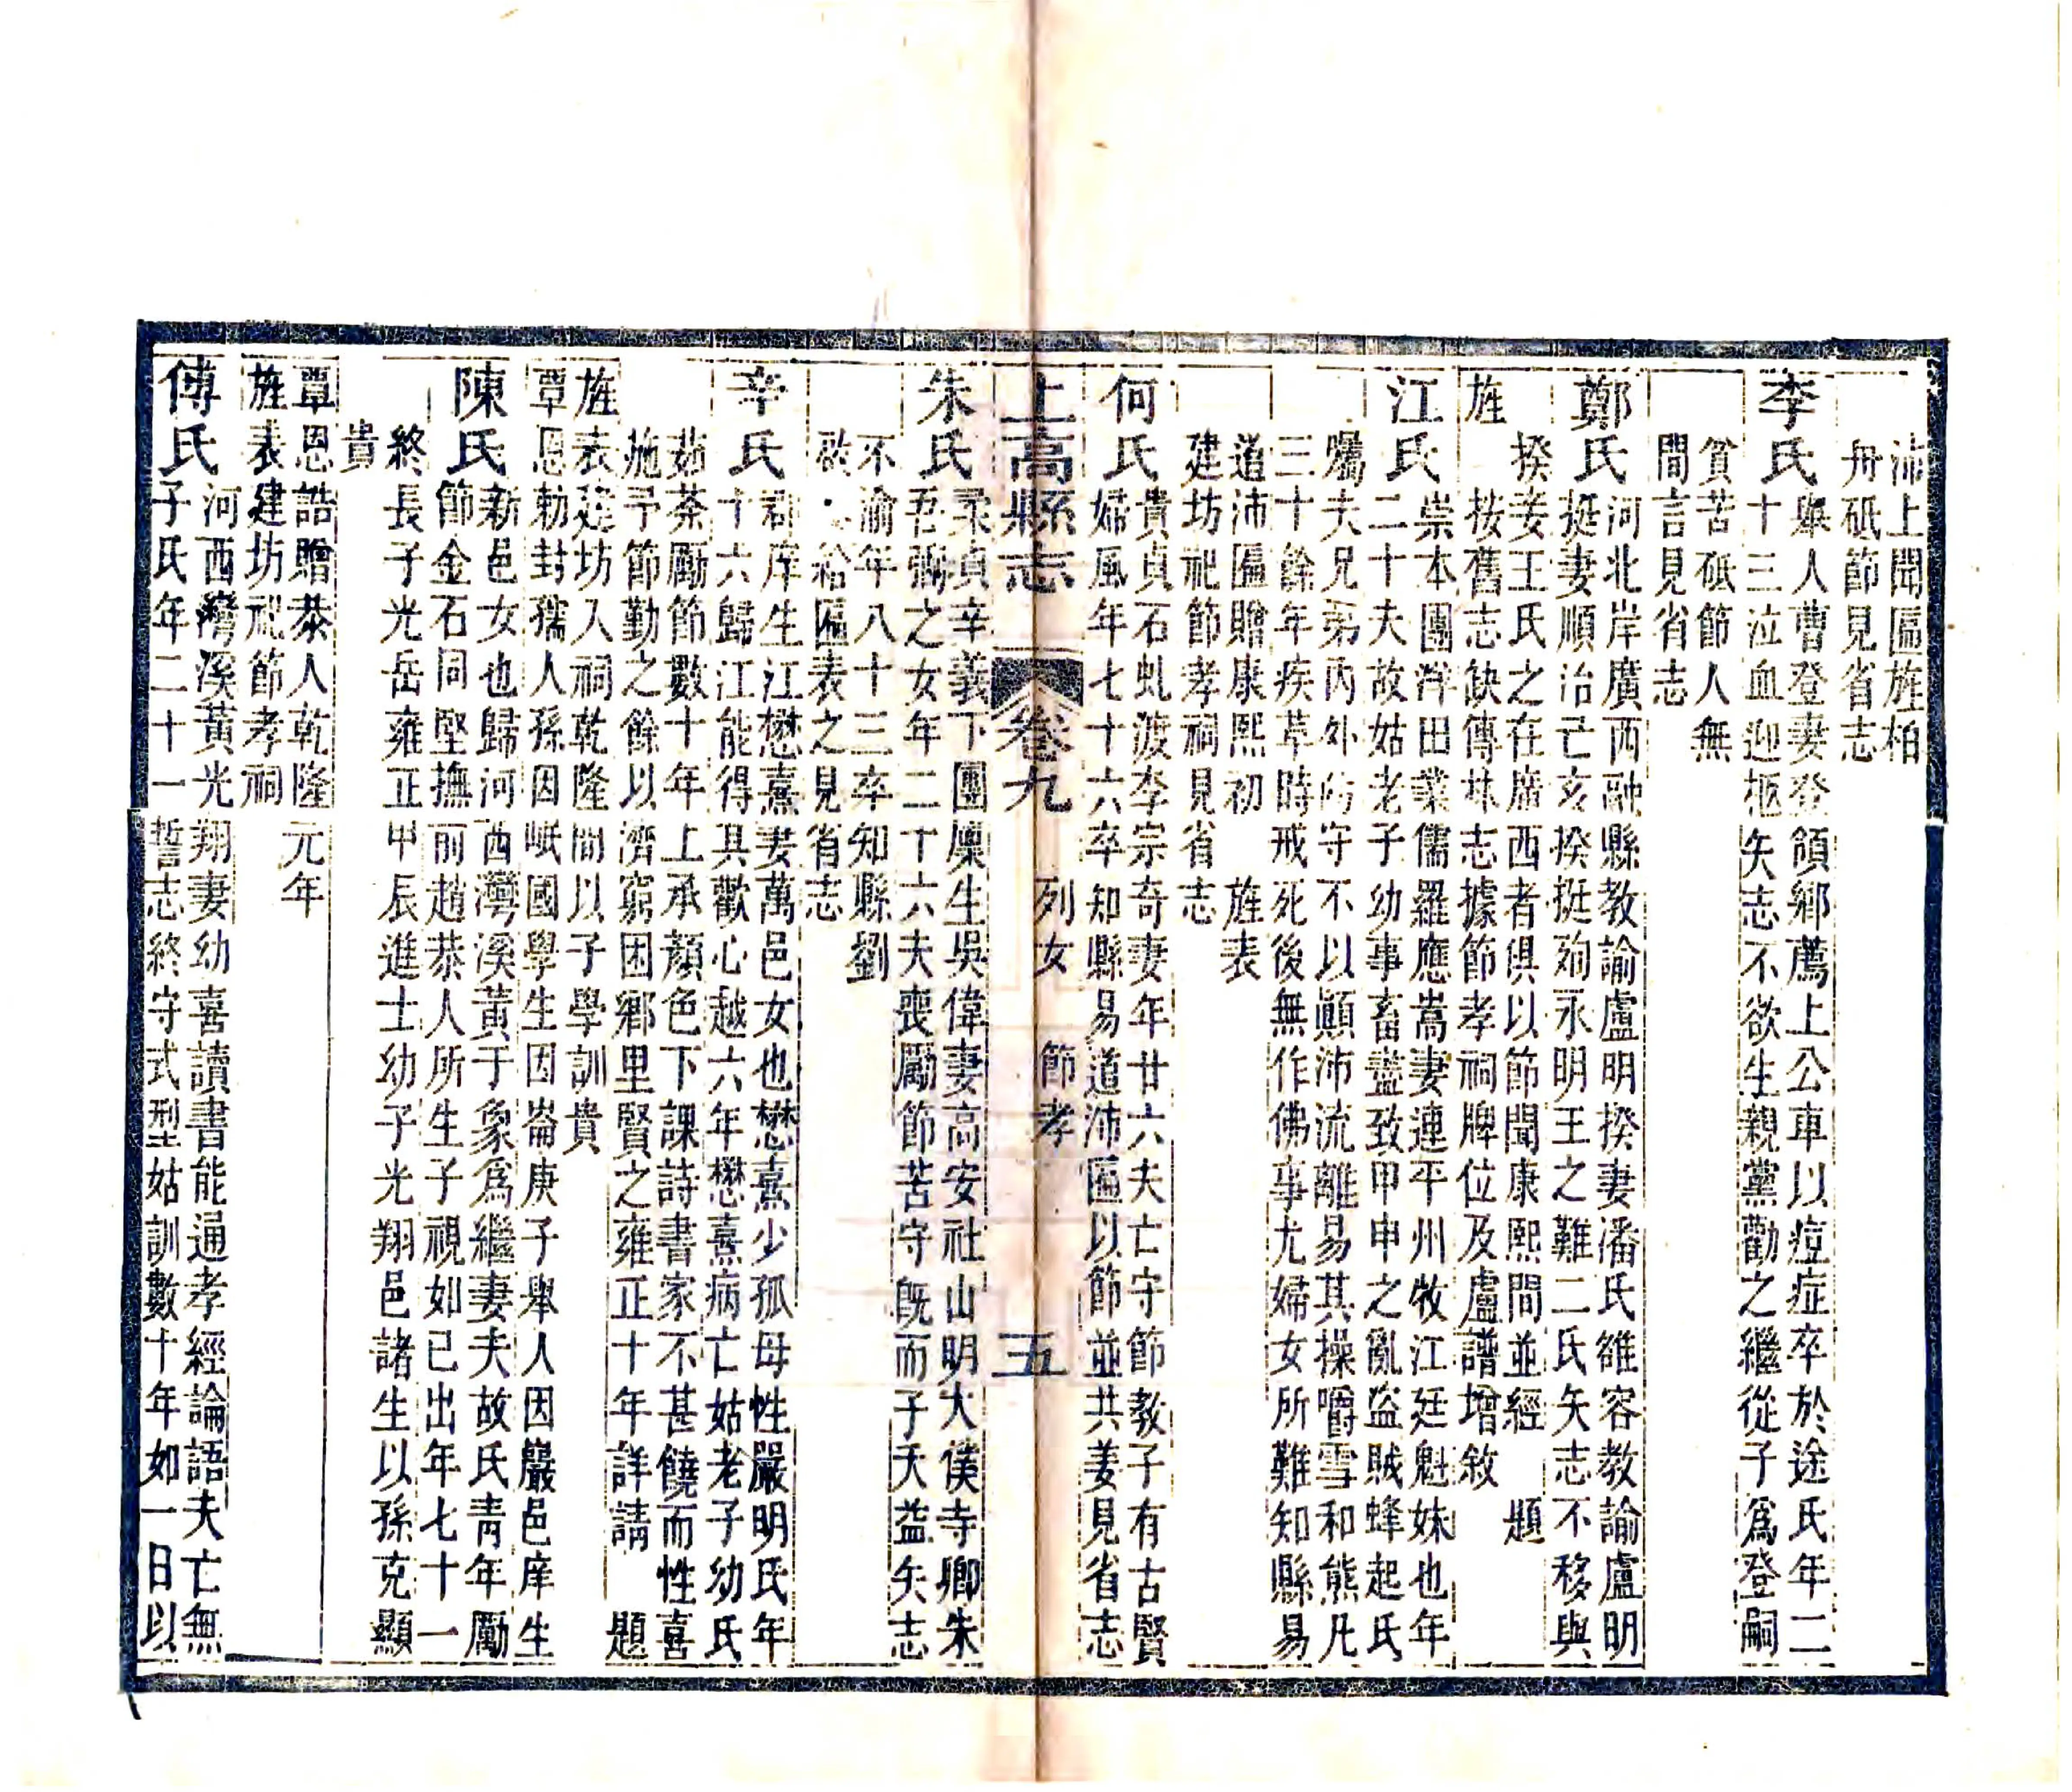 沛上聞匾旌柏
舟砥節見省志
李氏舉人曹登妻登領鄉薦上公車以痘症卒於途氏年二
十三泣血迎柩矢志不欲生親黨勸之繼從子爲登嗣
貧苦砥節人無
間言見省志
鄭氏河北岸廣西融縣教諭盧明揆妻潘氏雒容教諭盧明
挺妻順治亡亥揆挺殉永明王之難二氏矢志不移與
揆妾王氏之在廣西者俱以節聞康熙間並經 題
旌按舊志缺傳林志據節孝祠牌位及盧譜增敘
江氏崇本團泮田業儒羅應嵩妻連平州牧江廷魁妹也年
二十夫故姑老子幼事畜盡致甲申之亂盜賊蜂起氏
囑夫兄弟丙外防守不以顚沛流離易其操嚼雪和熊凡
三十餘年疾革時戒死後無作佛事尤婦女所難知縣易
道沛匾贈康熙初 旌表
建坊祀節孝祠見省志
何氏貴貞石虬渡李宗奇妻年廿六夫亡守節教子有古賢
婦風年七十六卒知縣易道沛匾以節並共姜見省志
上高縣志 卷九 列女 節孝 五
朱氏柔貞辛義下團廩生吳偉妻高安社山明大僕寺卿朱
吾弼之女年二十六夫喪勵節苦守旣而子夭益矢志
不渝年八十三卒知縣劉
啟 給匾表之見省志
辛氏郡庠生江懋熹妻萬邑女也懋熹少孤母性嚴明氏年
十六歸江能得其歡心越六年懋熹病亡姑老子幼氏
茹茶勵節數十年上承顏色下課詩書家不甚饒而性喜
施予節勤之餘以濟窮困鄉里賢之雍正十年詳請 題
旌表建坊入祠乾隆間以子學訓貴
覃恩勅封孺人孫因岷國學生因崙庚子舉人因巖邑庠生
陳氏新邑女也歸河西灣溪黃于象爲繼妻夫故氏青年勵
節金石同堅撫前趙恭人所生子視如已出年七十一
終長子光岳雍正甲辰進士幼子光翔邑諸生以孫克顯
貴
覃恩誥贈恭人乾隆元年
旌表建坊祀節孝祠
傅氏河西灣溪黃光翔妻幼喜讀書能通孝經論語夫亡無
子氏年二十一誓志終守式型姑訓數十年如一日以